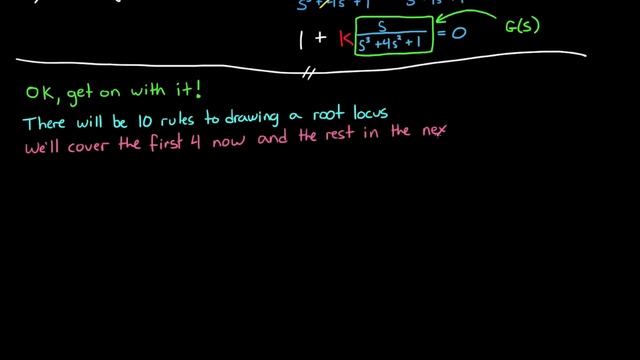 1 + K s/(s³+4s²+1) = 0
G(s)
OK, get on with it!
There will be 10 rules to drawing a root locus
We'll cover the first 4 now and the rest in the nex